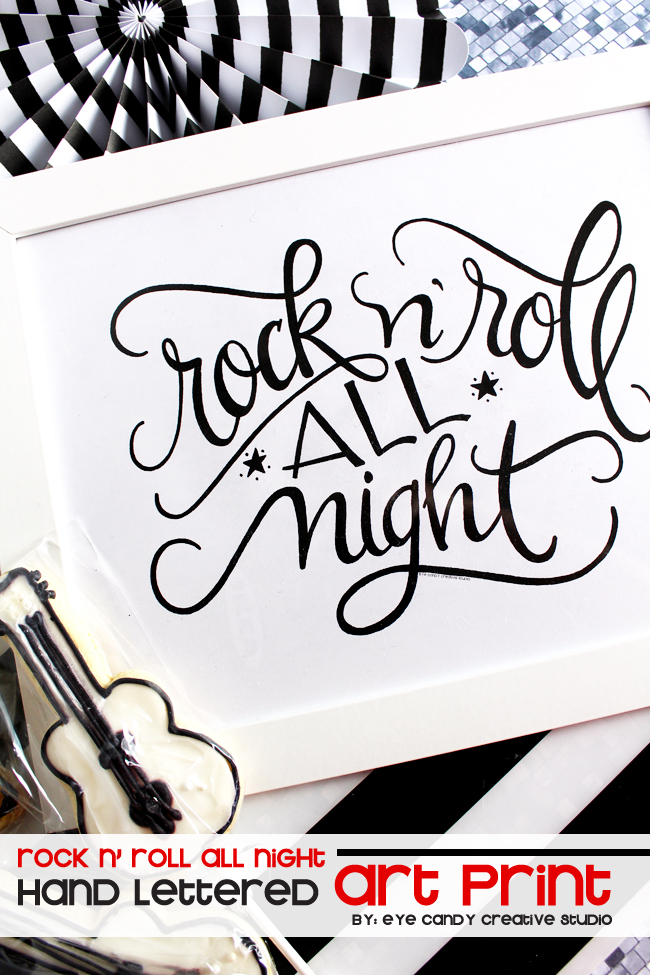 rock n' roll
ALL
night
eye candy creative studio
rock n' roll all night
Hand Lettered
art print
by: eye candy creative studio